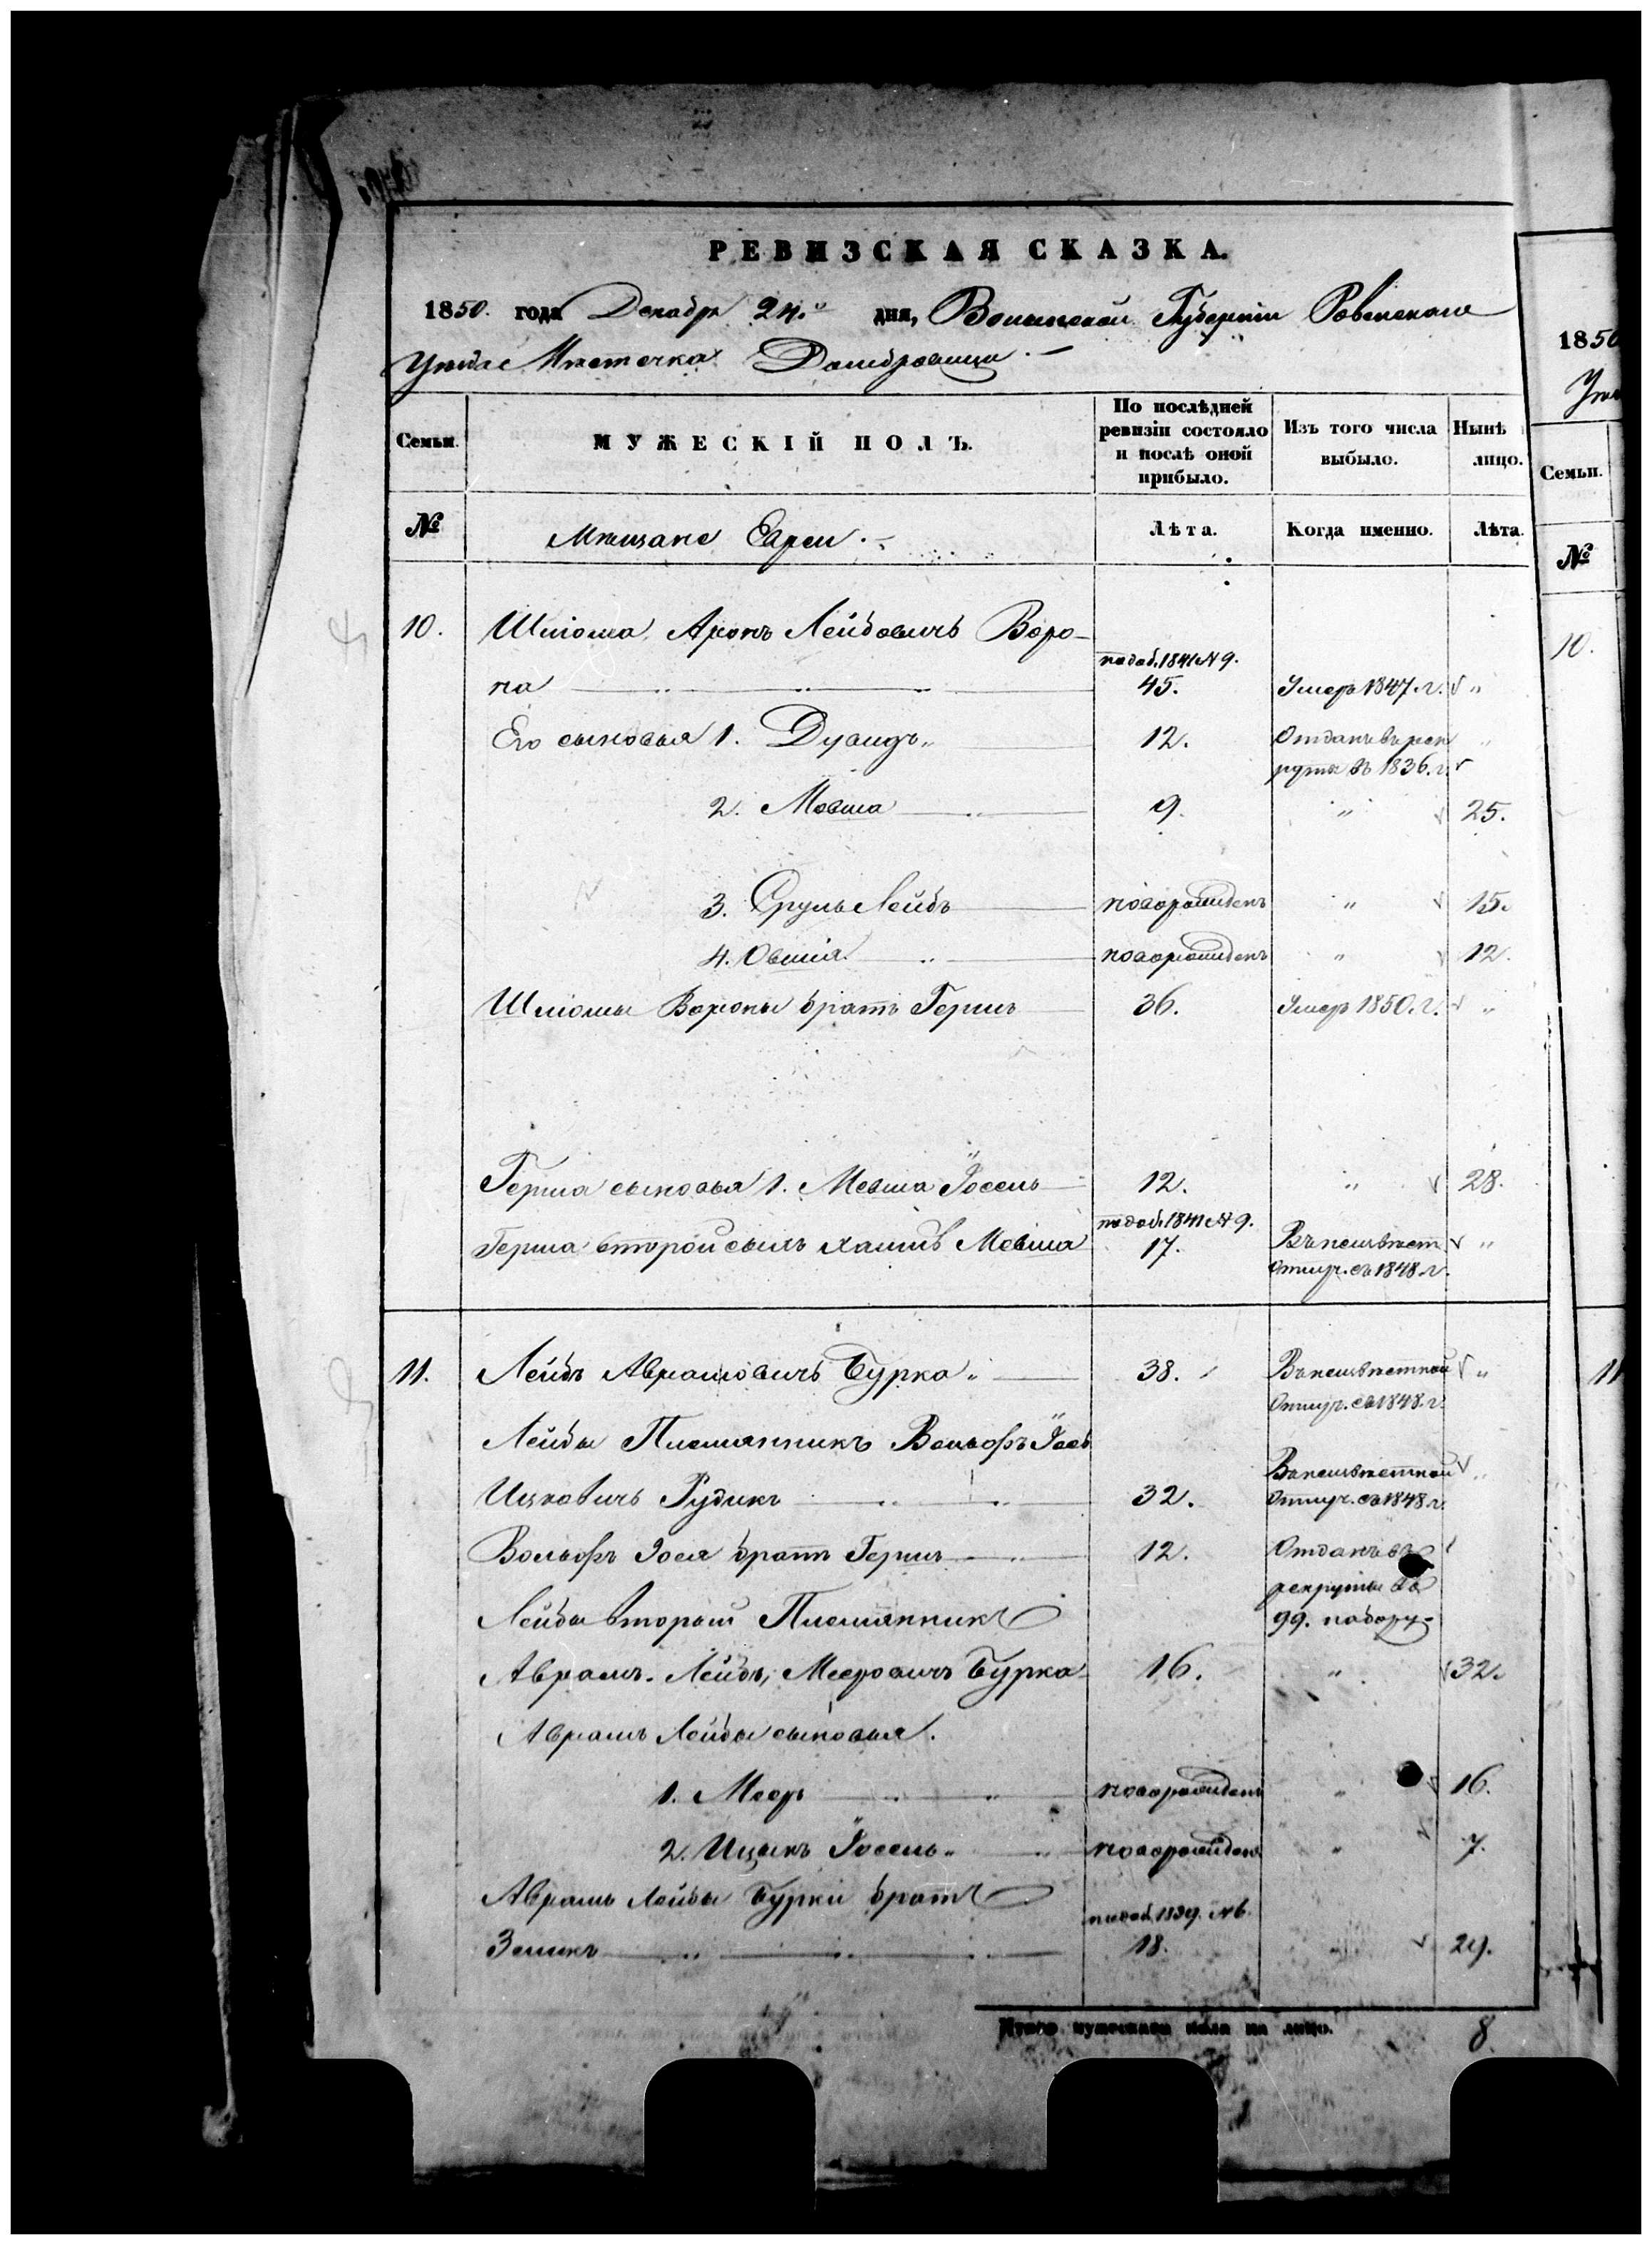 РЕВИЗСКАЯ СКАЗКА.
1850. года Декабр 24.го дня, Волынской Губерніи Ровенскаго
Уезда Мѣстечка Домбровицы.
Семьи. МУЖЕСКІЙ ПОЛЪ. По послѣдней ревизіи состояло и послѣ оной прибыло. Изъ того числа выбыло. Нынѣ лицо.
№ Мѣщане Евреи. Лѣта. Когда именно. Лѣта.
10. Шліома Аронъ Лейбовичъ Воро-
на по доб. 1841 № 9. 45. Умеръ 1847. г. "
Его сыновья 1. Дувидъ 12. Отданъ въ рек
руты въ 1836. г. "
2. Мовша 9. " 25.
3. Сруль Лейбъ новорожденъ " 15.
4. Овшія новорожденъ " 12.
Шліомы Вороны братъ Гершъ 36. Умеръ 1850. г. "
Герша сыновья 1. Мовша Іосель 12. " 28.
Герша второй сынъ Мовша по доб. 1841 № 9. 17. Въ безъизвѣст
отлуч. съ 1848. г. "
11. Лейбъ Аврамовичъ Бурко 38. Въ безъизвѣстной
отлуч. съ 1848. г. "
Лейбы Племянникъ Вольфъ Іосъ
Ицковичъ Рудикъ 32. Въ безъизвѣстной
отлуч. съ 1848 г. "
Вольфъ Іося братъ Гершъ 12. Отданъ въ
рекруты въ
99. наборъ
Лейбы вторый Племянникъ
Аврамъ Лейбъ Мееровичъ Бурко 16. " 32.
Аврамъ Лейбы сыновья.
1. Меєръ новорожденъ " 16.
2. Ицыкъ Іосель новорожденъ " 7.
Аврамъ Лейбы Бурки братъ
Зеликъ по доб. 1839. № 6. 18. " 29.
Итого мужескаго пола на лицо. 8.
1850
Семьи.
№
10.
11